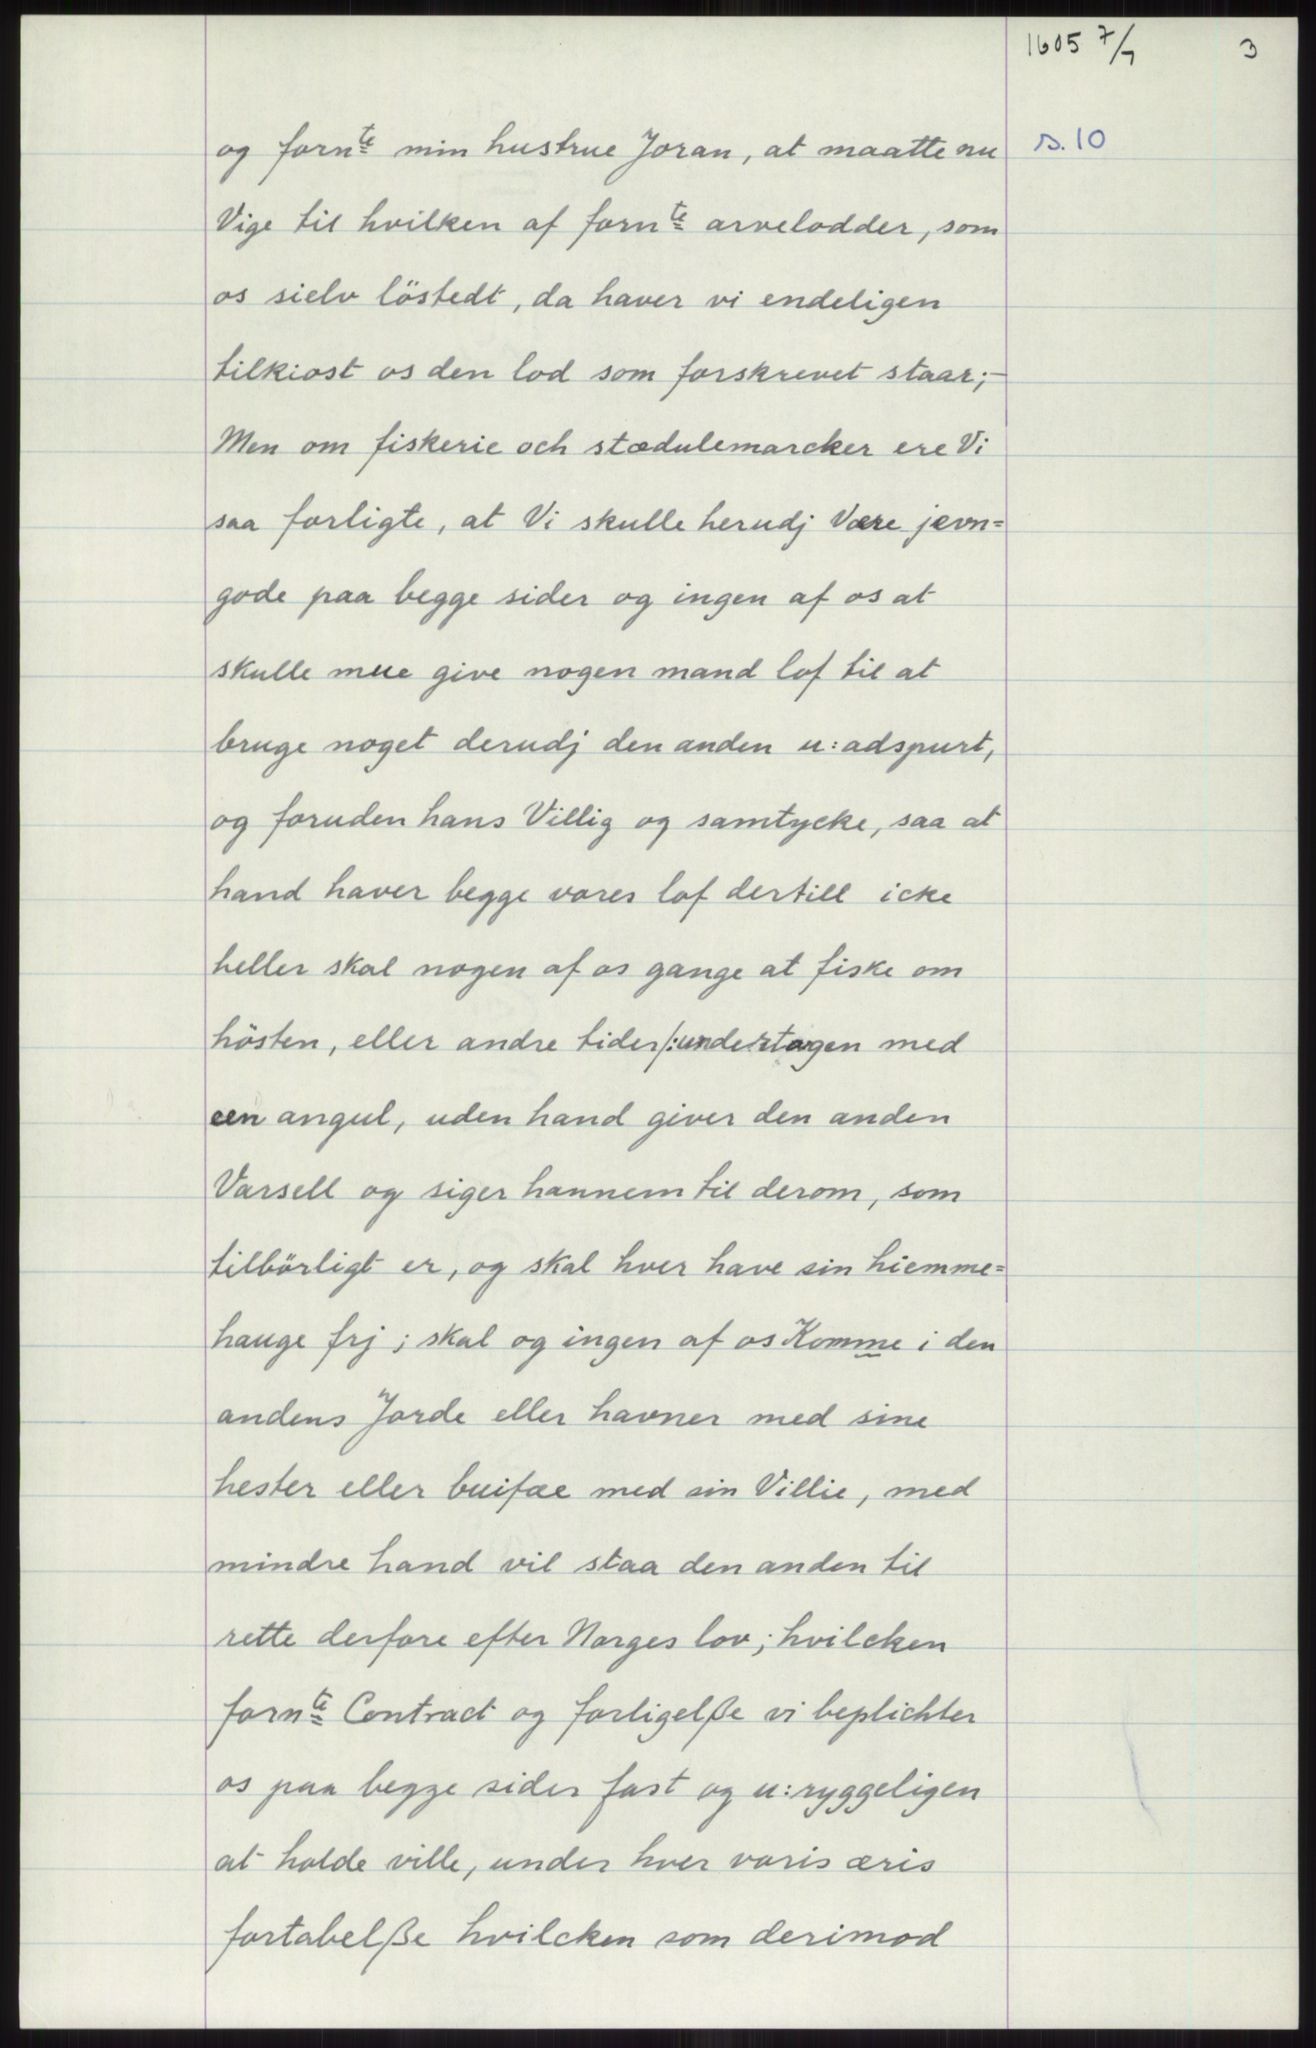 1605 7/7 3
s. 10
og fornte min hustrue Joran, at maatte nu
Vige til hvilken af fornte arvelodder, som
os sielv löstedt, da haver vi endeligen
tilkiost os den lod som forskrevet staar;-
Men om fiskerie och stædulemarcker ere Vi
saa forligte, at Vi skulle herudj Være jevn=
gode paa begge sider og ingen af os at
skulle mue give nogen mand lof til at
bruge noget derudj den anden u:adspurt,
og foruden hans Villig og samtycke, saa at
hand haver begge vores lof dertill icke
heller skal nogen af os gange at fiske om
hösten, eller andre tider/:undertagen med
een angul, uden hand giver den anden
Varsell og siger hannem til derom, som
tilbörligt er, og skal hver have sin hiemme=
hauge frj; skal og ingen af os Komme i den
andens Jorde eller havner med sine
hester eller buifæ med sin Villie, med
mindre hand vil staa den anden til
rette derfore efter Norges lov; hvilcken
fornte Contract og forligelße vi beplichter
os paa begge sider fast og u:ryggeligen
at holde ville, under hver voris æris
fortabelße hvilcken som derimod